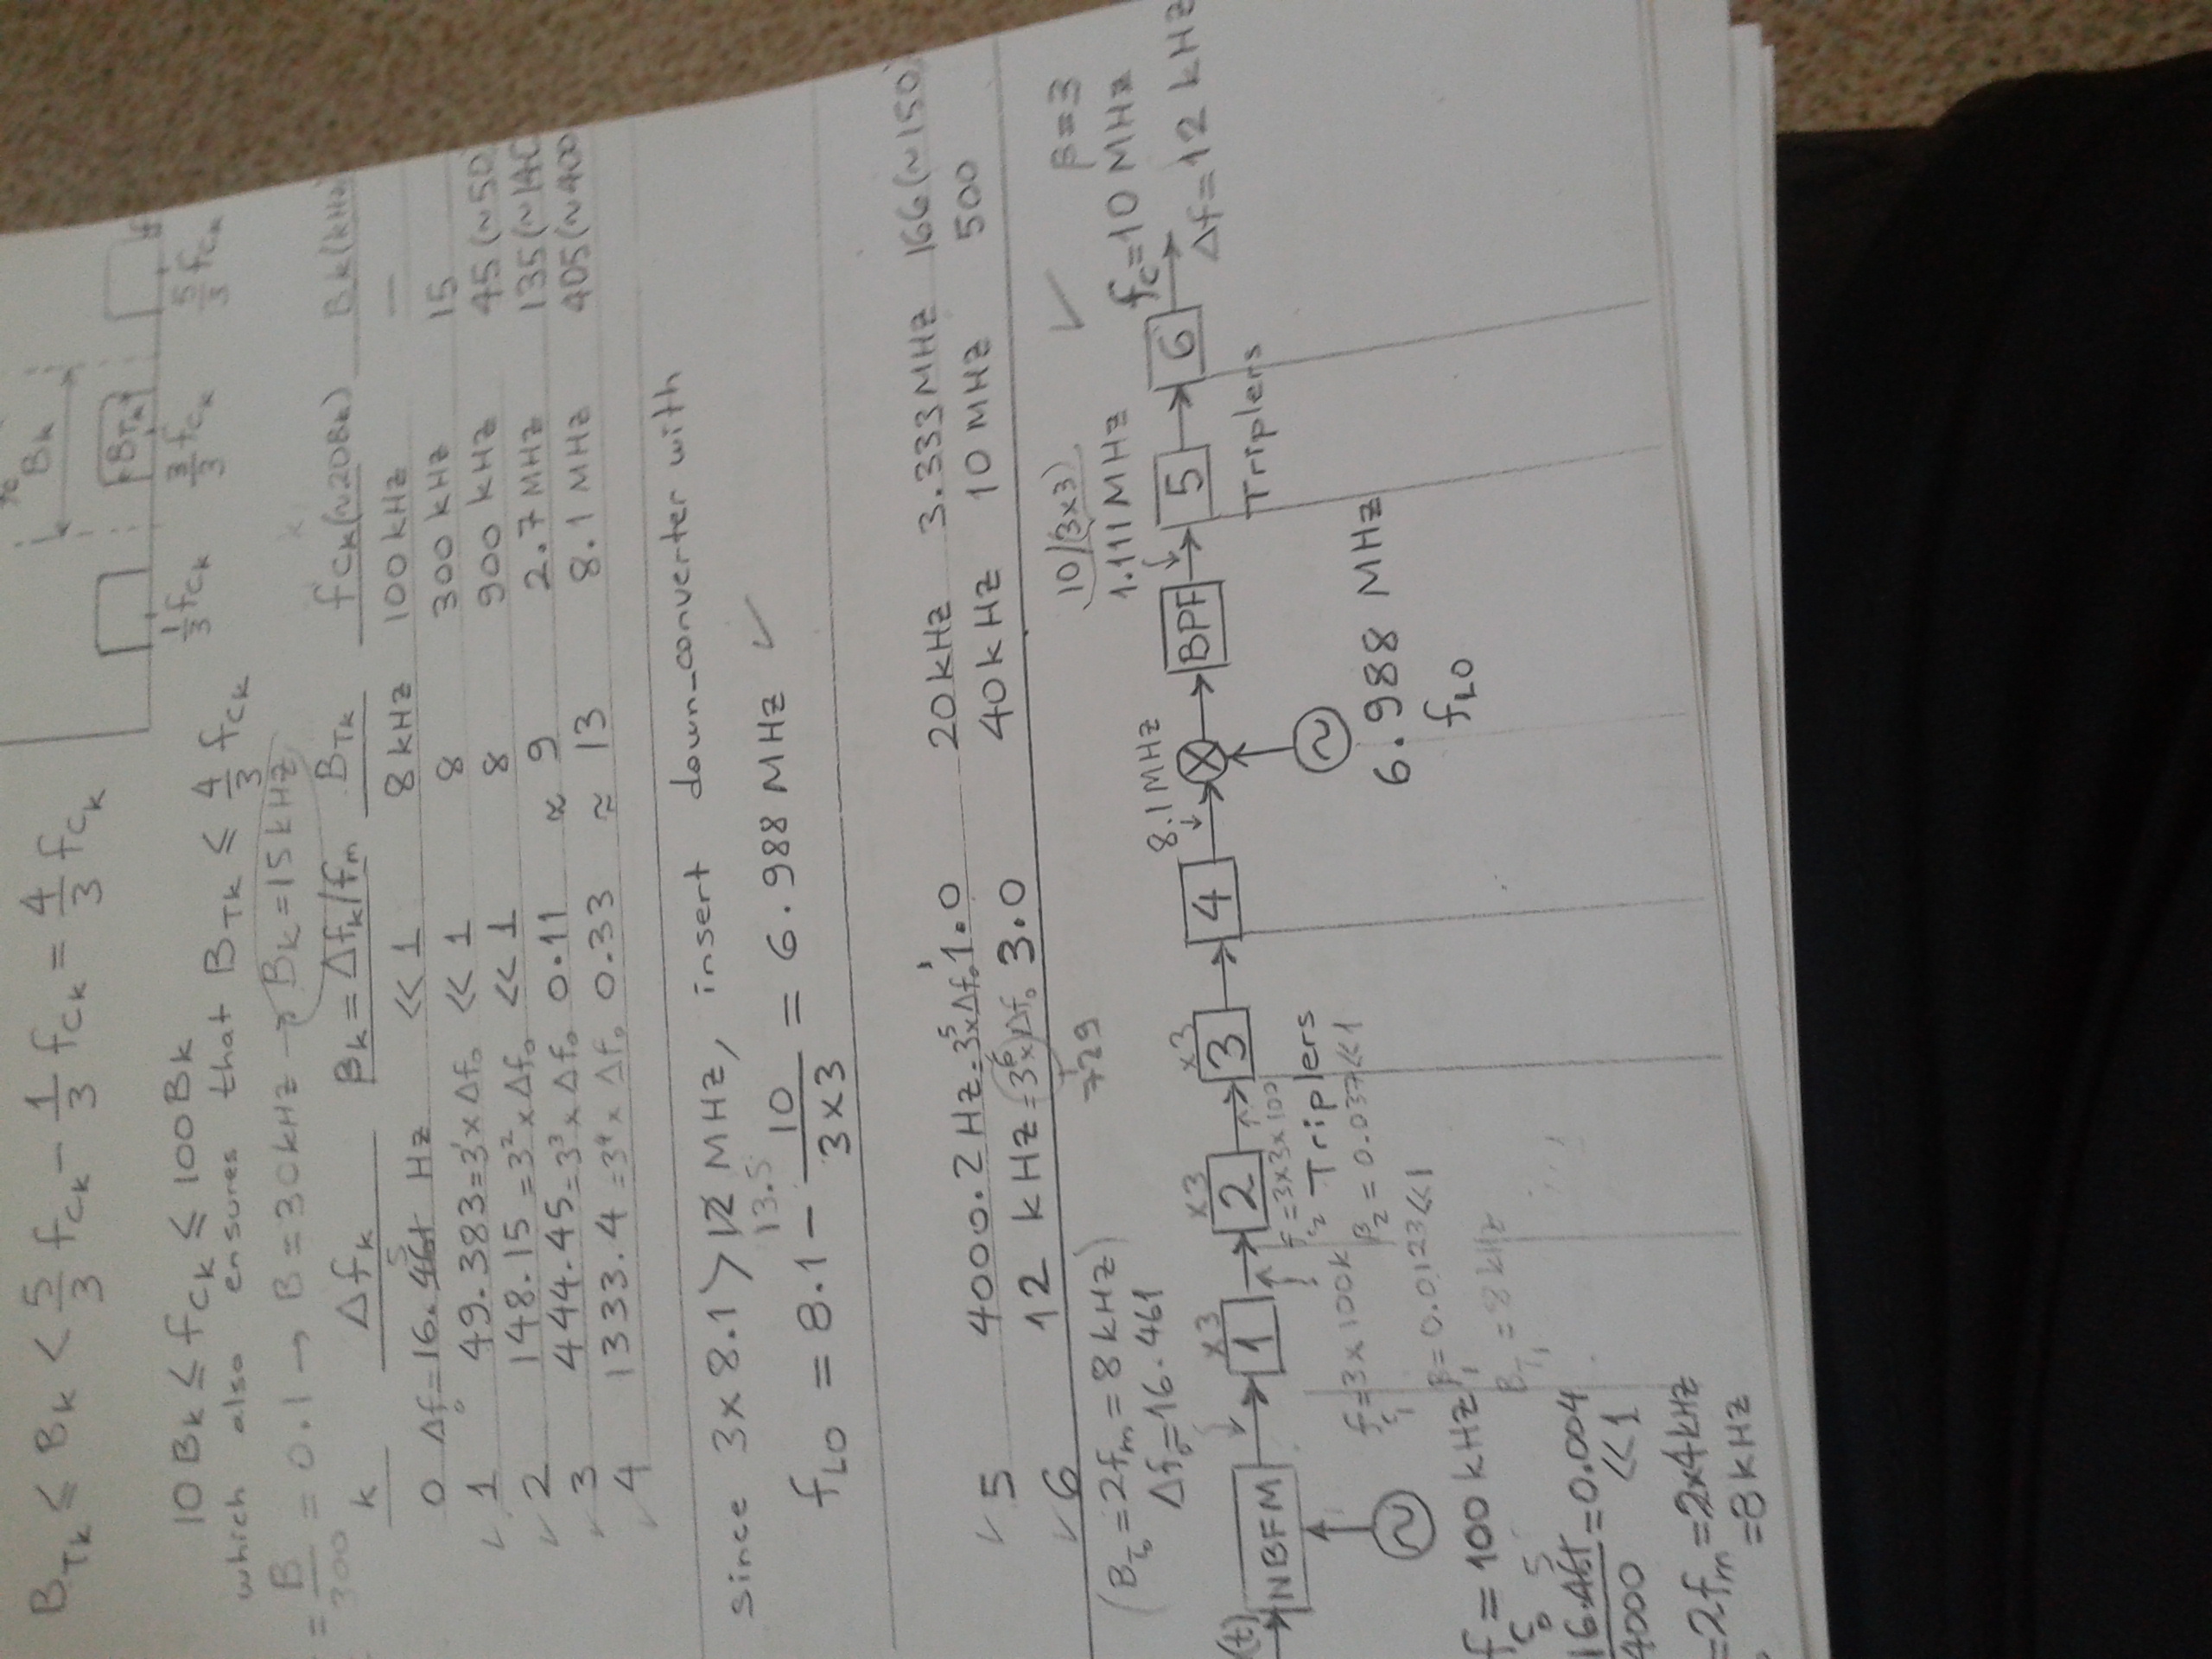 B_Tk ≤ B_k < 5/3 f_ck - 1/3 f_ck = 4/3 f_ck
B_k
B_Tk
1/3 f_ck 3/3 f_ck 5/3 f_ck
10B_k ≤ f_ck ≤ 100B_k
which also ensures that B_Tk ≤ 4/3 f_ck
= B/300 = 0.1 → B = 30kHz → B_k = 15kHz
k Δf_k β_k = Δf_k/f_m B_Tk f_ck(~20B_k) B_k(kHz
0 Δf_0=16.461 5 Hz << 1 8 kHz 100 kHz —
✓ 1 49.383=3^1×Δf_0 << 1 8 300 kHz 15
✓ 2 148.15=3^2×Δf_0 << 1 8 900 kHz 45(~50
✓ 3 444.45=3^3×Δf_0 0.11 ≈ 9 2.7 MHz 135(~140
✓ 4 1333.4=3^4×Δf_0 0.33 ≈ 13 8.1 MHz 405(~400
since 3×8.1 > 12 MHz, insert down_converter with
13.5
f_LO = 8.1 - 10/(3×3) = 6.988 MHz ✓
✓ 5 4000.2 Hz=3^5×Δf_0 1.0 20kHz 3.333MHz 166(~150)
✓ 6 12 kHz=3^6×Δf_0 3.0 40kHz 10 MHz 500
729
(B_T0=2f_m=8kHz)
Δf_0=16.461
10/(3×3) ✓ β=3
8.1MHz 1.111MHz f_c=10MHz
Δf=12 kHz
×3 ×3 ×3
(t) NBFM 1 2 3 4 ⊗ BPF 5 6
Triplers Triplers
f_c1=3×100k
f_c2=3×3×100
β_1=0.0123<<1
β_2=0.037<<1
B_T1=8kHz
6.988 MHz
f_LO
f_c0=100 kHz
16.461 5/4000=0.004
<< 1
=2f_m=2×4kHz
=8kHz